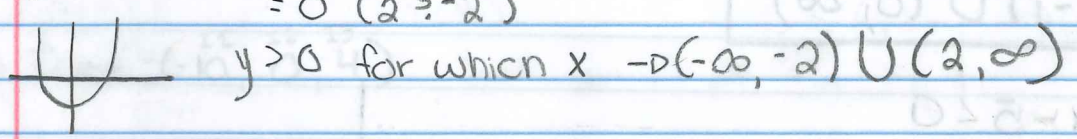 = 0 (2 & -2)
y > 0 for which x → (-∞, -2) ∪ (2, ∞)